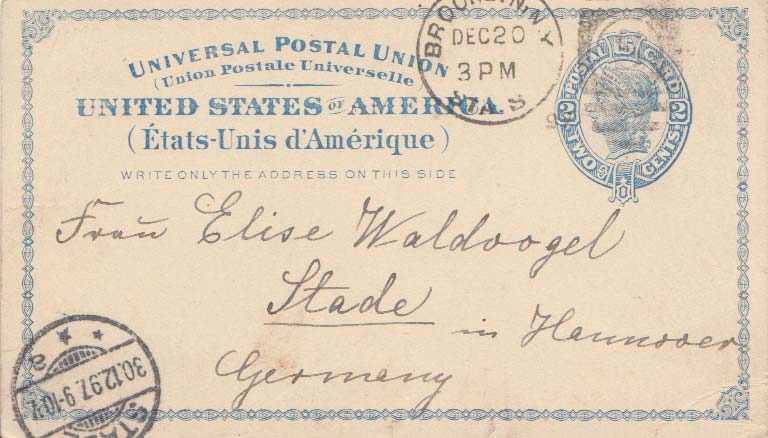 UNIVERSAL POSTAL UNION
(Union Postale Universelle)
UNITED STATES OF AMERICA.
(États-Unis d'Amérique)
WRITE ONLY THE ADDRESS ON THIS SIDE
BROOKLYN, N.Y.
DEC 20
3 PM
STA. S
POSTAL CARD
2 2
TWO CENTS
Frau Elise Waldvogel
Stade
in Hannover
Germany
30.12.97. 9-10